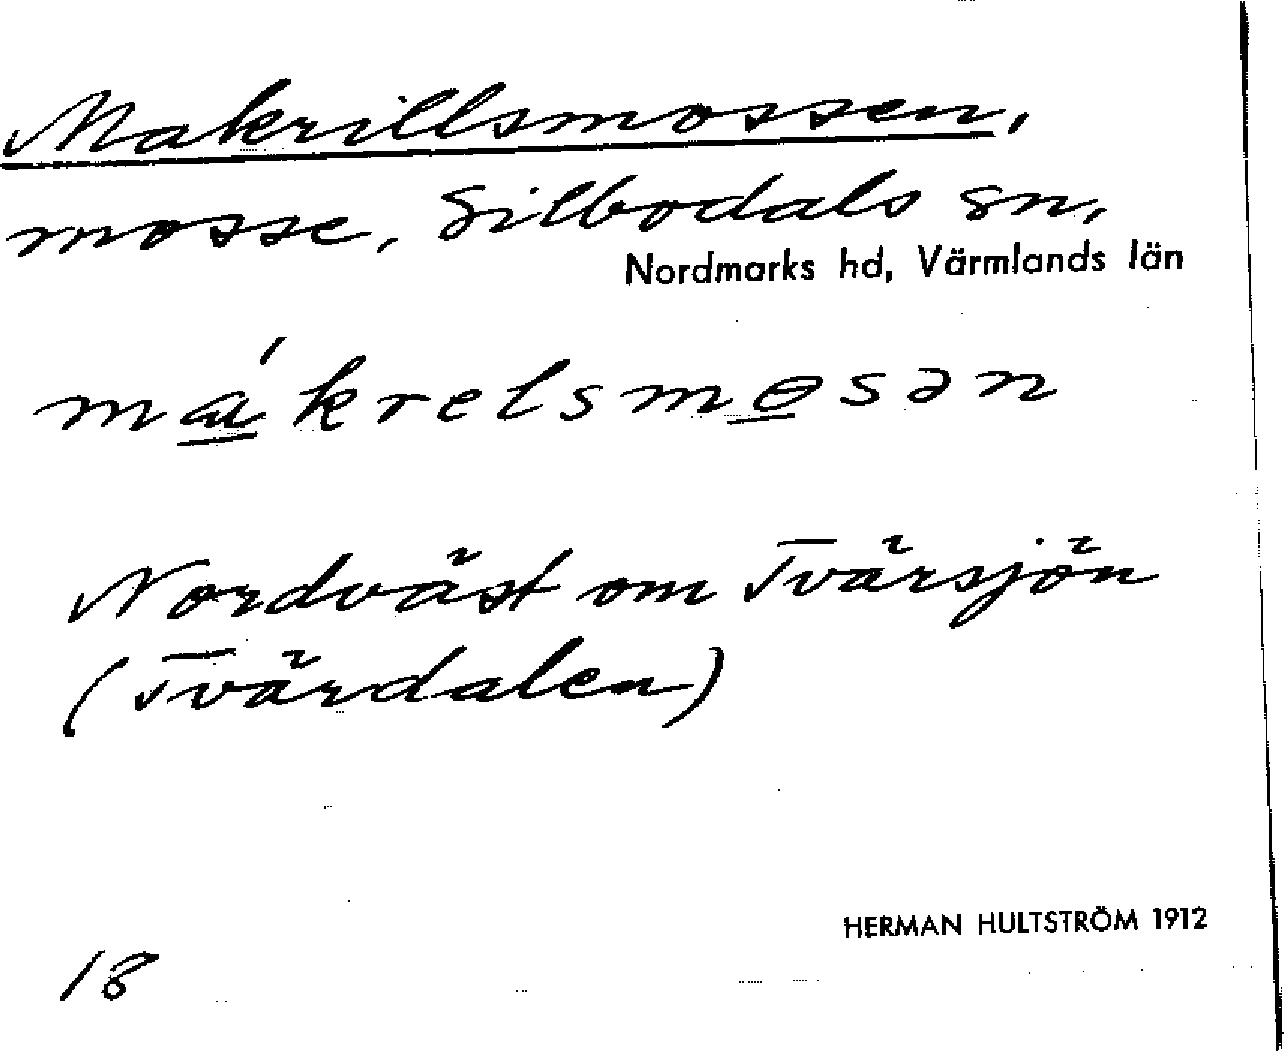 Makrillsmossen,
mosse, Silbodals sn,
Nordmarks hd, Värmlands län
mákrelsmɵsən
Nordväst om Tvärsjön
(Tvärdalen)
HERMAN HULTSTRÖM 1912
18